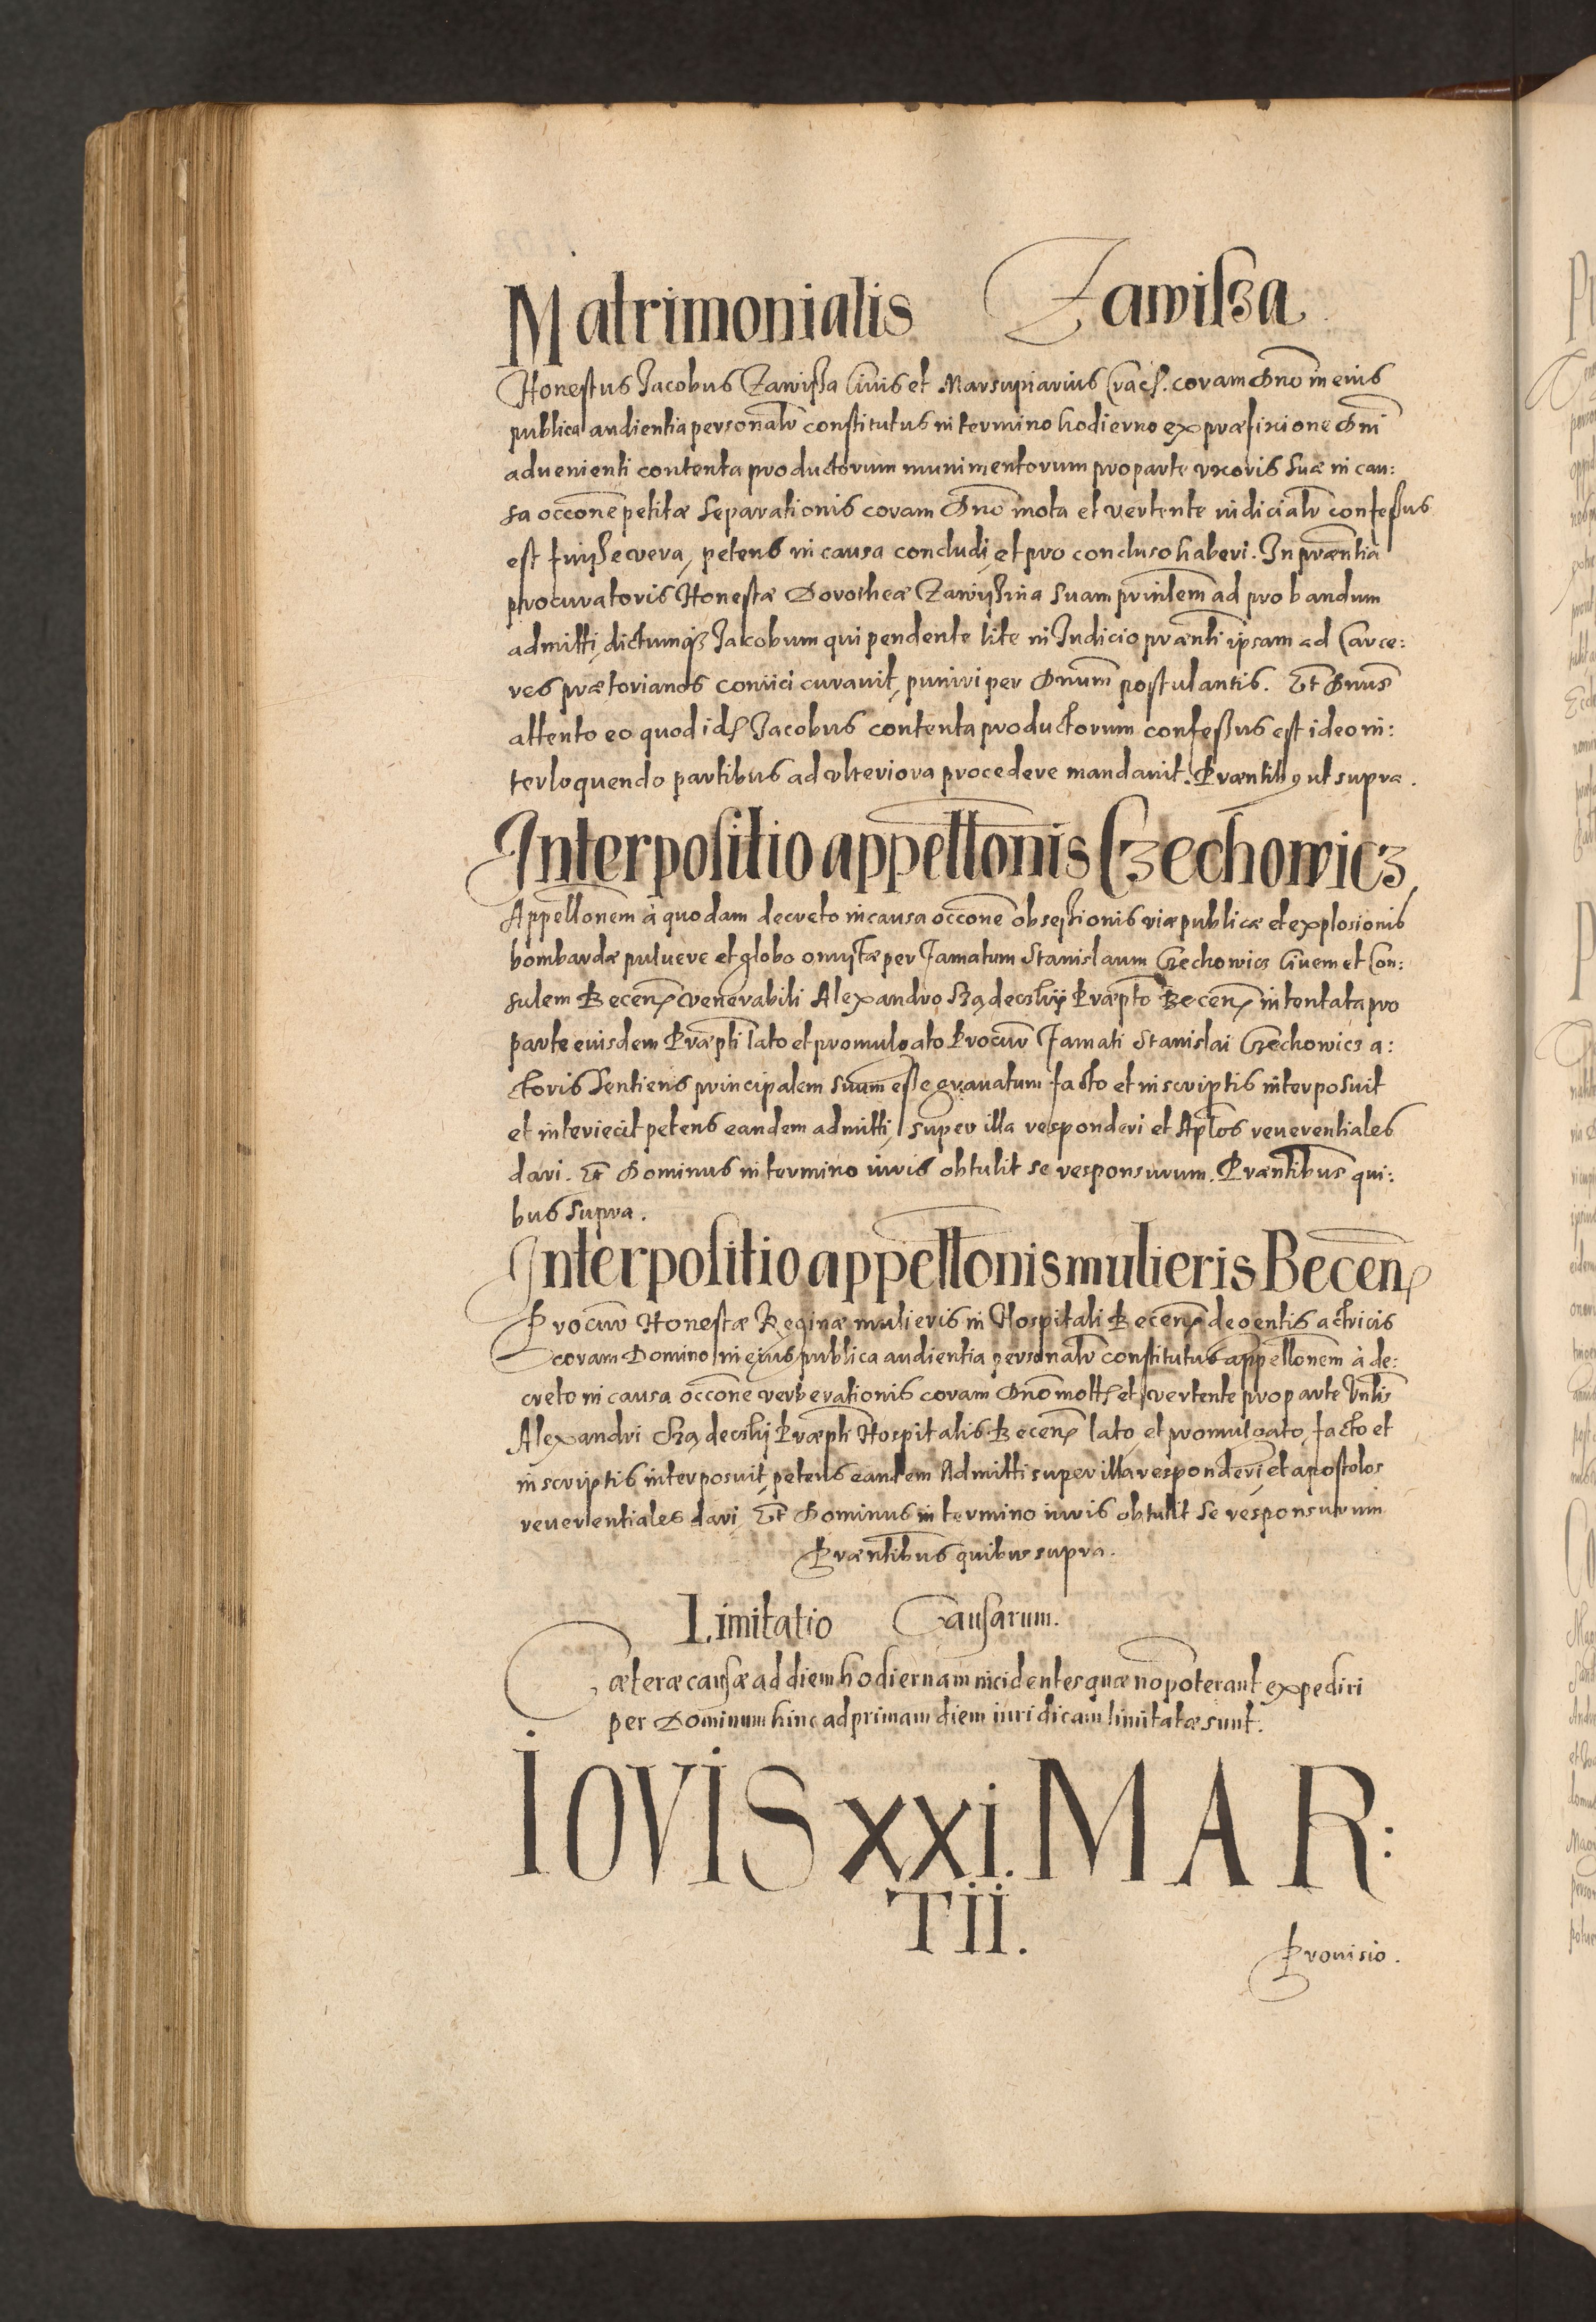 Matrimonialis Zawisza
Honestus Jacobus Zawissa Ciuis et Marsupiarius Crac̃. coram Dno in eius
publica audientia personalr̃ constitutus in termino hodierno ex præfixione Dni
aduenienti contenta productorum munimentorum pro parte vxoris suæ in cau:
sa occone petitæ separationis coram Dno mota et vertente iudicialr̃ confessus
est fuisse vera, petens in causa concludi, et pro concluso haberi. In præntia
procuratoris Honestæ Dorotheæ Zawissina suam prinlem ad probandum
admitti, dictumq3 Jacobum qui pendente lite in Judicio prænti ipsam ad Carce:
res prætorianos coniici curauit, puniri per Dnum postulantis. Et Dnus
attento eo quod id Jacobus contenta productorum confessus est ideo in:
terloquendo partibus ad vlteriora procedere mandauit. Præntib9 ut supra.
Interpositio appellonis Czechowicz
Appellonem à quodam decreto in causa occone obsessionis viæ publicæ et explosionis
bombardæ puluere et globo onustæ per famatum Stanislaum Czechowicz Ciuem et Con:
sulem Becen̄ venerabili Alexandro Szadecskij Præpto Becen̄ intentata pro
parte eiusdem Præpti lato et promulgato Procur̃ famati Stanislai Czechowicz a:
ctoris sentiens principalem suum esse grauatum facto et in scriptis interposuit
et interiecit petens eandem admitti, super illa responderi et Aplos reuerentiales
dari. Et Dominus in termino iuris obtulit se responsurum. Præntibus qui:
bus supra.
Interpositio appellonis mulieris Becen̄
Procur̃ Honestæ Reginæ mulieris in Hospitali Becen̄ degentis actricis
coram Domino in eius publica audientia personalr̃ constitutus appellonem à de:
creto in causa occone verberationis coram Dno mott et vertente pro parte Vnlis
Alexandri Szadecskij Præpti Hospitalis Becen̄ lato, et promulgato, facto et
in scriptis interposuit, petens eandem Admitti super illa responderi, et apostolos
reuerentiales dari, Et Dominus in termino iuris obtulit se responsurum
Præntibus quibus supra.
Limitatio Causarum.
Cæteræ causæ ad diem hodiernam incidentes quæ no poterant expediri
per Dominum hinc ad primam diem iuridicam limitatæ sunt.
IOVIS XXI. MAR:
TII.
Prouisio.